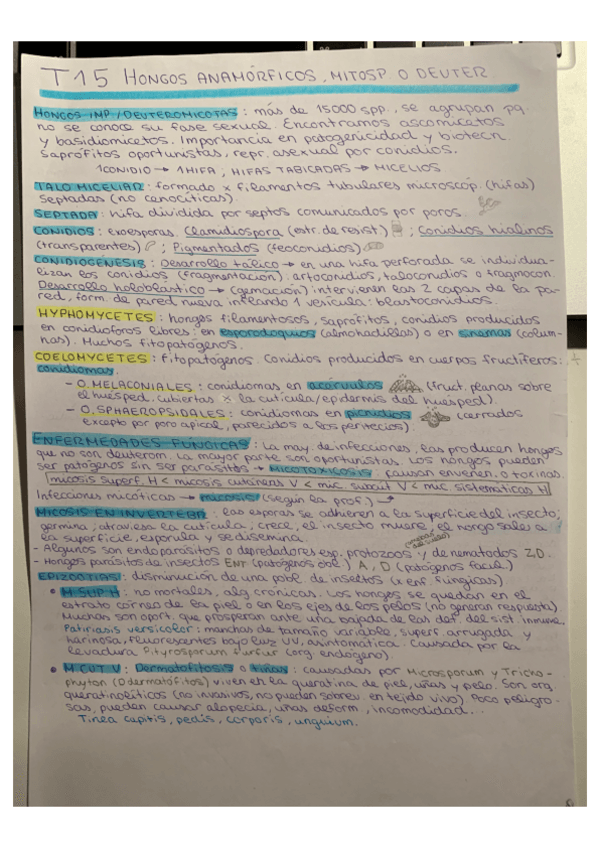 T15 HONGOS ANAMÓRFICOS, MITOSP O DEUTER
HONGOS IMP/DEUTEROMICOTAS: más de 15000 spp, se agrupan pq
no se conoce su fase sexual. Encontramos ascomicetos
y basidiomicetos. Importancia en patogenicidad y biotecn.
Saprófitos oportunistas, repr. asexual por conidios.
1CONIDIO → 1HIFA, HIFAS TABICADAS → MICELIOS
TALO MICELIAR: formado x filamentos tubulares microscóp. (hifas)
Septadas (no cenocíticas).
SEPTADA: hifa dividida por septos comunicados por poros.
CONIDIOS: exoesporas. Clamidiospora (estr. de resist); Conidios hialinos
(transparentes); Pigmentados (feoconidios)
CONIDIOGÉNESIS: Desarrollo tálico → en una hifa perforada se individua-
lizan los conidios (fragmentación). artoconidios, taloconidios o fragmocon.
Desarrollo holoblástico → (gemación) intervienen las 2 capas de la pa-
red, form. de pared nueva inflando 1 vesícula: blastoconidios.
HYPHOMYCETES: hongos filamentosos, saprófitos, conidios producidos
en conidióforos libres: en esporodoquios (almohadillas) o en sinemas (colum-
nas). Muchos fitopatógenos.
COELOMYCETES: fitopatógenos. Conidios producidos en cuerpos fructíferos:
conidiomas.
- O. MELACONIALES: conidiomas en acérvulos (fruct. planas sobre
el huésped. cubiertas x la cutícula/epidermis del huésped).
- O. SPHAEROPSIDALES: conidiomas en picnidios (cerrados
excepto por poro apical, parecidos a los peritecios)
ENFERMEDADES FÚNGICAS: La may. de infecciones, las producen hongos
que no son deuterom. La mayor parte son oportunistas. Los hongos pueden
ser patógenos sin ser parásitos → MICOTOXICOSIS (causan envenen. o toxinas.
micosis superf. H < micosis cutáneas V < mic. subcut V < mic. sistemáticas H
Infecciones micóticas → micosis (según la prof.)
MICOSIS EN INVERTEBR: las esporas se adhieren a la superficie del insecto;
germina; atraviesa la cutícula, crece, el insecto muere, el hongo sale a
la superficie, esporula y se disemina.
- Algunos son endoparásitos o depredadores esp. protozoos y de nematodos Z, D.
- Hongos parásitos de insectos ENT (patógenos obl) A, D (patógenos facul.)
EPIZOOTIAS: disminución de una pobl. de insectos (x enf. fúngicas)
• M. SUP H: no mortales, alg crónicas. Los hongos se quedan en el
estrato córneo de la piel o en los ejes de los pelos (no generan respuesta)
Muchas son oport. que prosperan ante una bajada de las def. del sist. inmune.
Patiriasis versicolor: manchas de tamaño variable, superf. arrugada y
harinosa, fluorescentes bajo luz UV, asintomática. Causada por la
levadura Pityrosporum furfur (org. endógeno).
• M. CUT V: Dermatofitosis o tiñas: causadas por Microsporum y Tricho-
phyton (O dermatófitos) viven en la queratina de piel, uñas y pelo. Son org.
queratinolíticos (no invasivos, no pueden sobrev. en tejido vivo) Poco peligro-
sas, pueden causar alopecia, uñas deform., incomodidad...
Tinea capitis, pedis, corporis, unguium.